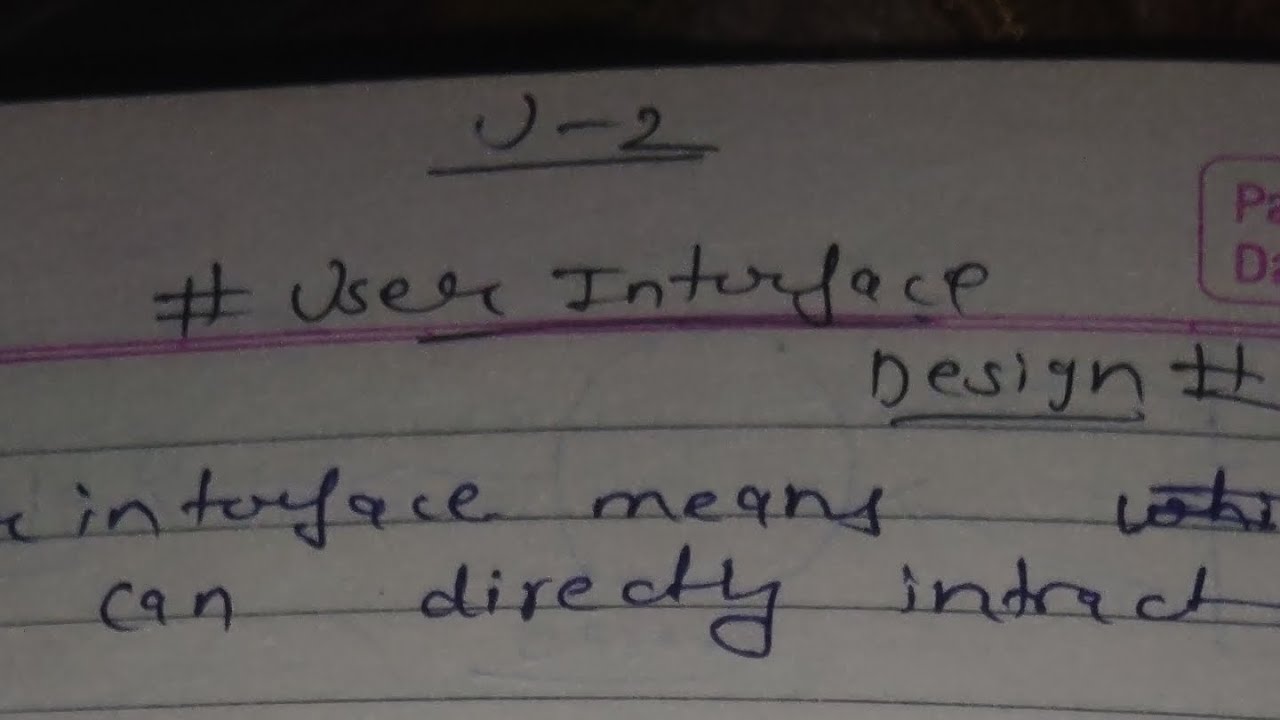 U-2
Pa
Da
# User Interface
Design #
interface means
can directly intract